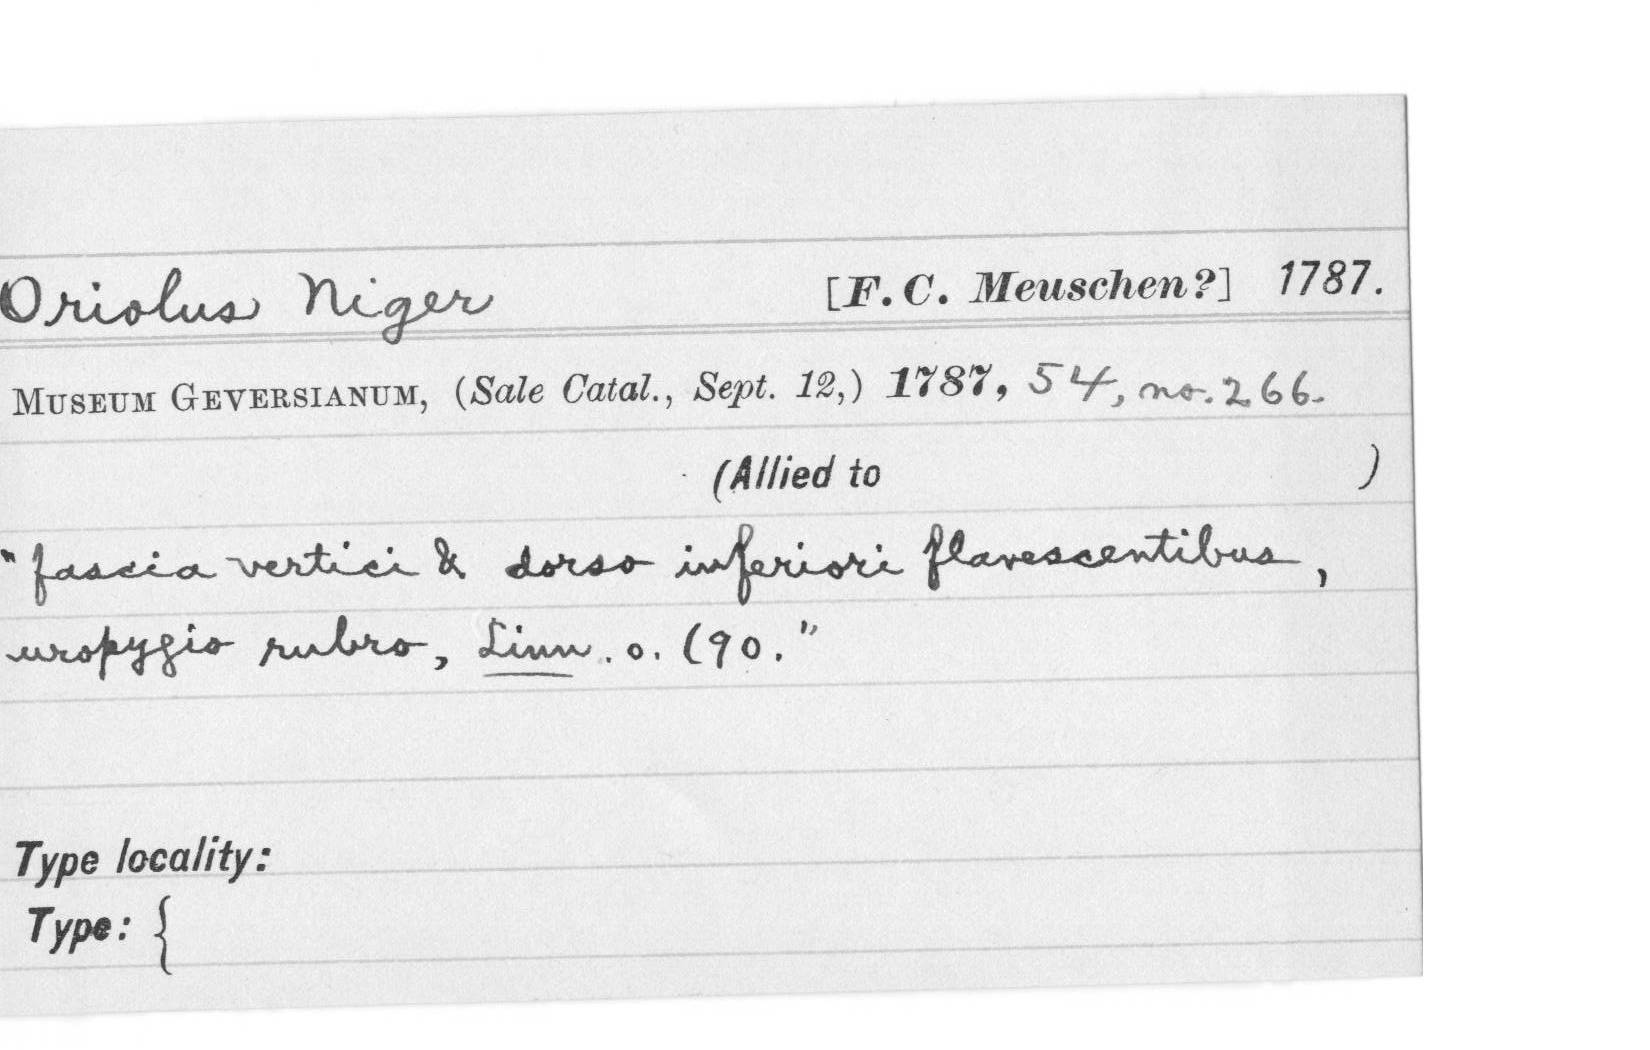 Oriolus Niger [F. C. Meuschen?] 1787.
MUSEUM GEVERSIANUM, (Sale Catal., Sept. 12,) 1787, 54, no. 266.
(Allied to )
"fascia vertici & dorso inferiori flavescentibus,
uropygio rubro, Linn. o. (90."
Type locality:
Type: {